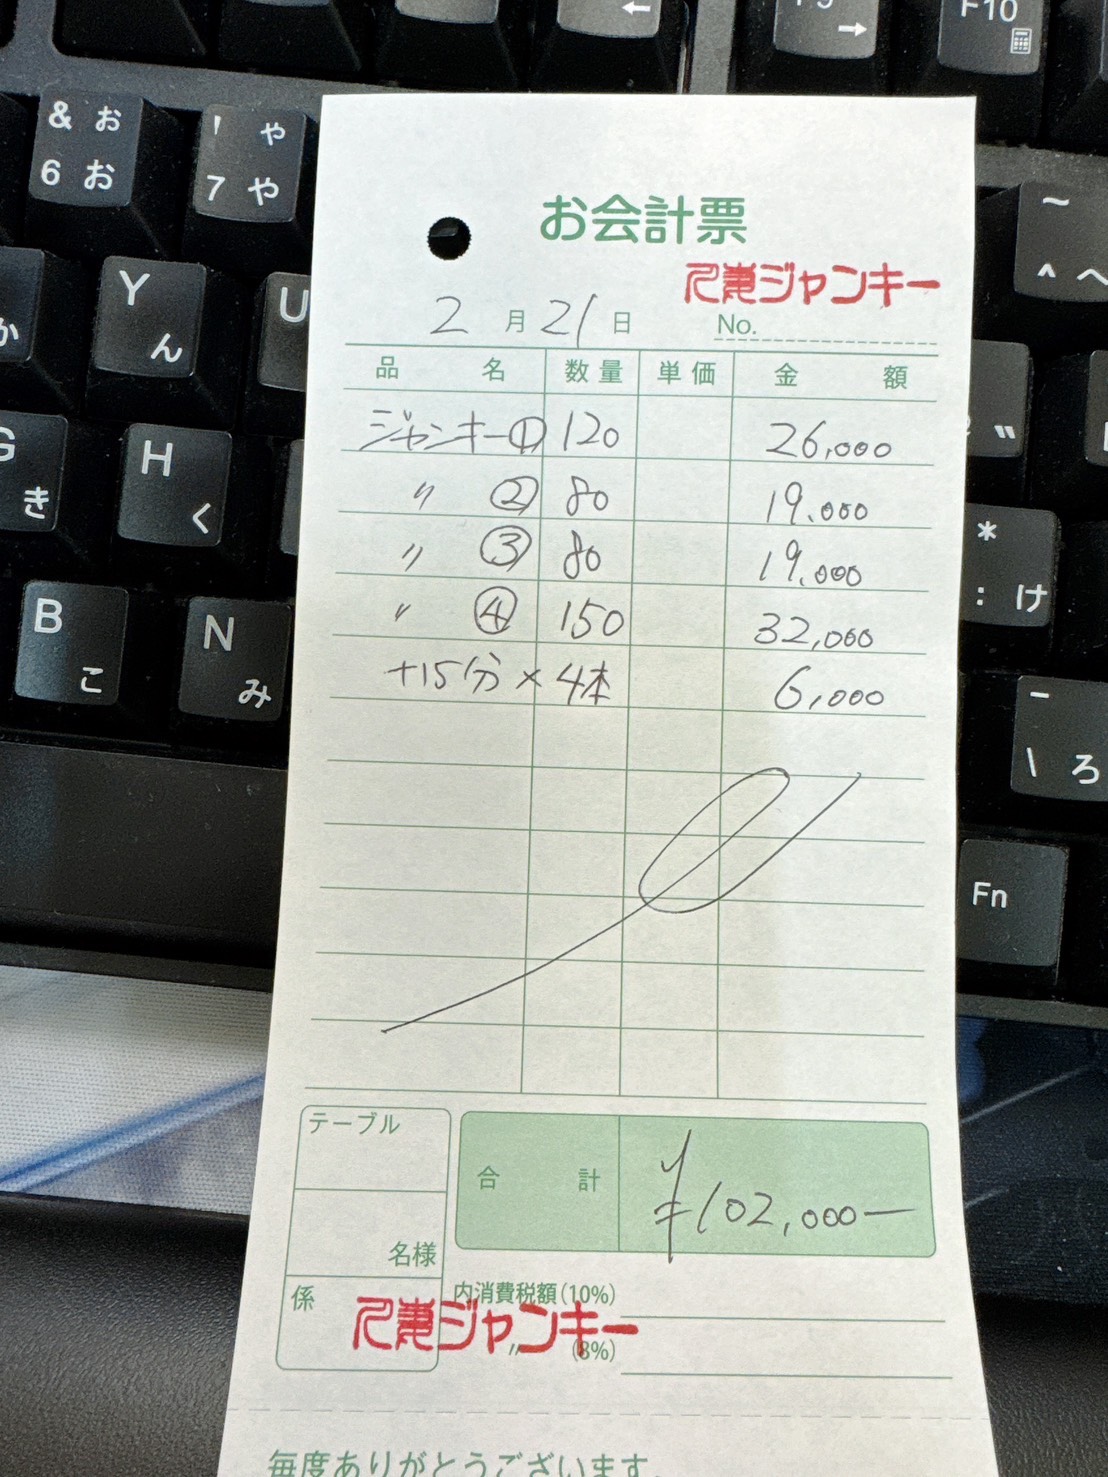 ←
F9
→
F10
& お
6 お
' や
7 や
~
^ へ
お会計票
人妻ジャンキー
2月21日 No.
Y
ん
U
か
品名 数量 単価 金額
ジャンキー① 120 26,000
〃 ② 80 19,000
〃 ③ 80 19,000
〃 ④ 150 32,000
+15分×4本 6,000
G
き
H
く
*
: け
B
こ
N
み
\ ろ
Fn
テーブル
名様
係
合計 ¥102,000―
内消費税額(10%)
人妻ジャンキー
〃 (8%)
毎度ありがとうございます。